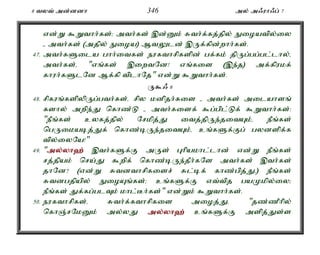 8 வலவ் அன்னனா 346 அல் அஃராஃப் 7
என்று கூறுவார்கள்; அவர்கள் இன்னும் சுவர்க்கத்தில் நுழையவில்லை
, அவர்கள் (அதில் நுழைய) ஆவலுடன் இருக்கின்றார்கள்.
47. அவர்களுடைய பார்வைகள் நரகவாசிகளின் பக்கம் திருப்பப்பட்டால்,
அவர்கள், "எங்கள் இறைவனே! எங்களை (இந்த) அக்கிரமக்
காரர்களுடனே ஆக்கி விடாதே" என்று கூறுவார்கள்.
ருகூஃ 6
48. சிகரங்களிலிருப்பவர்கள், சில மனிதர்களை , அவர்கள் அடையாளங்
களால் அறிந்து கொண்டு , அவர்களைக் கூப்பிட்டுக் கூறுவார்கள்:
"நீங்கள் உலகத்தில் சேமித்து வைத்திருந்தவையும், நீங்கள்
பெருமையடித்துக் கொண்டிருந்தவையும், உங்களுக்குப் பலனளிக்க
வில்லையே!"
49. "அல்லாஹ் இவர்களுக்கு அருள் புரியமாட்டான் என்று நீங்கள்
சத்தியம் செய்து கூறிக் கொண்டிருந்தீர்களே அவர்கள் இவர்கள்
தானே? (என்று சுவனவாசிகளைச் சுட்டிக் காண்பித்து,) நீங்கள்
சுவனபதியில் நுழையுங்கள்; உங்களுக்கு எவ்வித பயமுமில்லை;
நீங்கள் துக்கப்படவும் மாட்டீர்கள்" என்றும் கூறுவார்கள்.
50. நரகவாசிகள், சுவர்க்கவாசிகளை அழைத்து, "தண்ணீரில்
கொஞ்சமேனும் அல்லது அல்லாஹ் உங்களுக்கு அளித்துள்ள